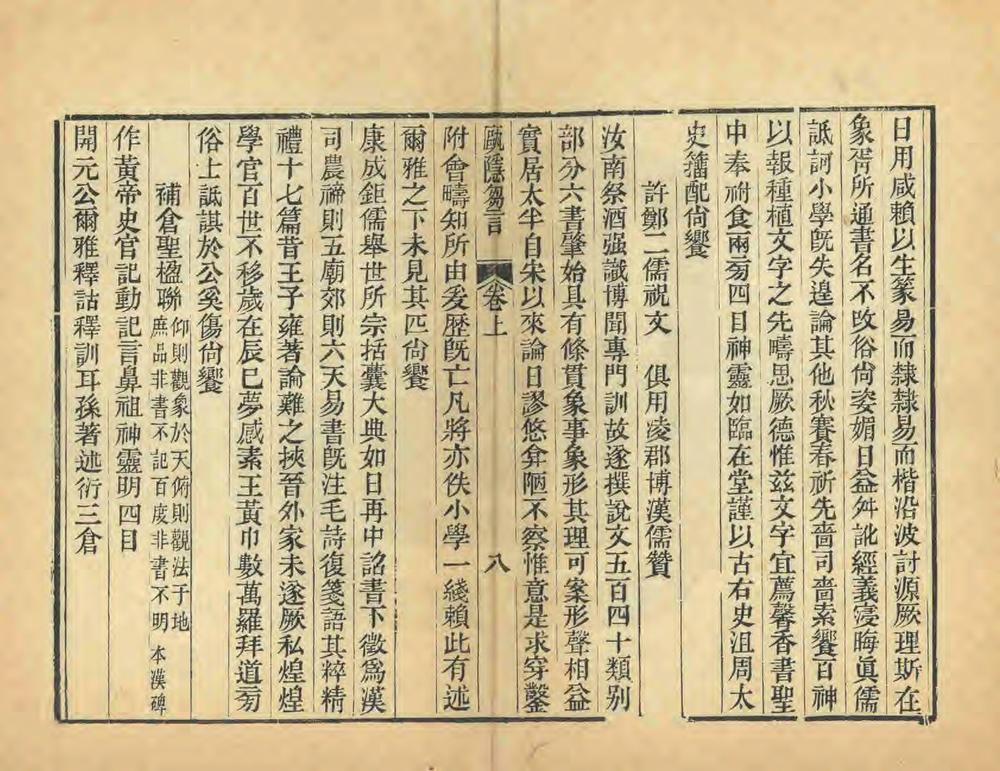 日用咸賴以生篆易而隸隸易而楷沿波討源厥理斯在
象胥所通書名不攺俗尙姿媚日益舛訛經義寖晦眞儒
詆訶小學旣失遑論其他秋賽春祈先嗇司嗇索饗百神
以報種植文字之先疇思厥德惟兹文字宜薦馨香書聖
中奉祔食兩㫄四目神靈如臨在堂謹以古右史沮周太
史籒配尙饗
許鄭二儒祝文　俱用凌郡博漢儒贊
汝南祭酒强識博聞專門訓故遂撰說文五百四十類别
部分六書肇始具有條貫象事象形其理可案形聲相益
實居太半自宋以來論日謬悠弇陋不察惟意是求穿鑿
甌隱芻言　卷上　八
附會疇知所由爰歷旣亡凡將亦佚小學一綫賴此有述
爾雅之下未見其匹尙饗
康成鉅儒舉世所宗括囊大典如日再中詔書下徵爲漢
司農禘則五廟郊則六天易書旣注毛詩復箋語其粹精
禮十七篇昔王子雍著論難之挾晉外家未遂厥私煌煌
學官百世不移歲在辰巳夢感素王黃巾數萬羅拜道㫄
俗士詆諆於公奚傷尙饗
補倉聖楹聯 仰則觀象於天俯則觀法于地
庶品非書不記百度非書不明 本漢碑
作黃帝史官記動記言鼻祖神靈明四目
開元公爾雅釋詁釋訓耳孫著述衍三倉